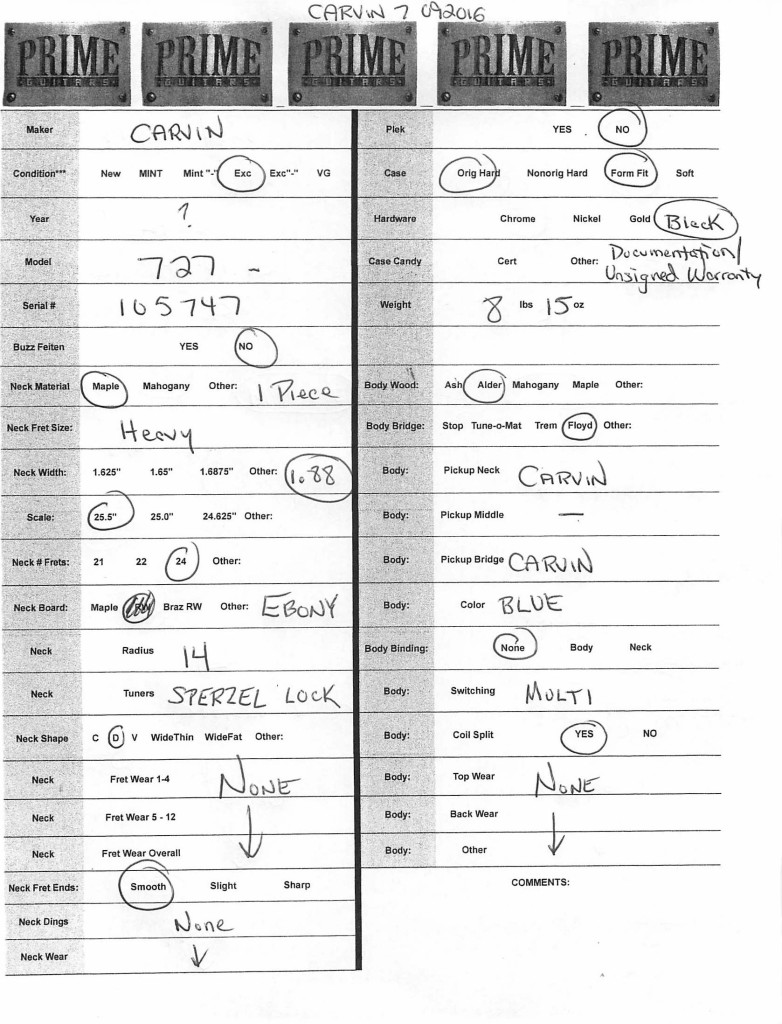 CARVIN 7 092016
PRIME PRIME PRIME PRIME PRIME
GUITARS GUITARS GUITARS GUITARS GUITARS
Maker CARVIN
Condition*** New MINT Mint "-" Exc Exc"-" VG
Year ?
Model 727 -
Serial # 105747
Buzz Feiten YES NO
Neck Material Maple Mahogany Other: 1 Piece
Neck Fret Size: Heavy
Neck Width: 1.625" 1.65" 1.6875" Other: 1.88
Scale: 25.5" 25.0" 24.625" Other:
Neck # Frets: 21 22 24 Other:
Neck Board: Maple RW Braz RW Other: EBONY
Neck Radius 14
Neck Tuners SPERZEL LOCK
Neck Shape C D V WideThin WideFat Other:
Neck Fret Wear 1-4 NONE
Neck Fret Wear 5 - 12
Neck Fret Wear Overall
Neck Fret Ends: Smooth Slight Sharp
Neck Dings None
Neck Wear
Plek YES NO
Case Orig Hard Nonorig Hard Form Fit Soft
Hardware Chrome Nickel Gold Black
Case Candy Cert Other: Documentation/
Unsigned Warranty
Weight 8 lbs 15 oz
Body Wood: Ash Alder Mahogany Maple Other:
Body Bridge: Stop Tune-o-Mat Trem Floyd Other:
Body: Pickup Neck CARVIN
Body: Pickup Middle —
Body: Pickup Bridge CARVIN
Body: Color BLUE
Body Binding: None Body Neck
Body: Switching MULTI
Body: Coil Split YES NO
Body: Top Wear NONE
Body: Back Wear
Body: Other
COMMENTS: